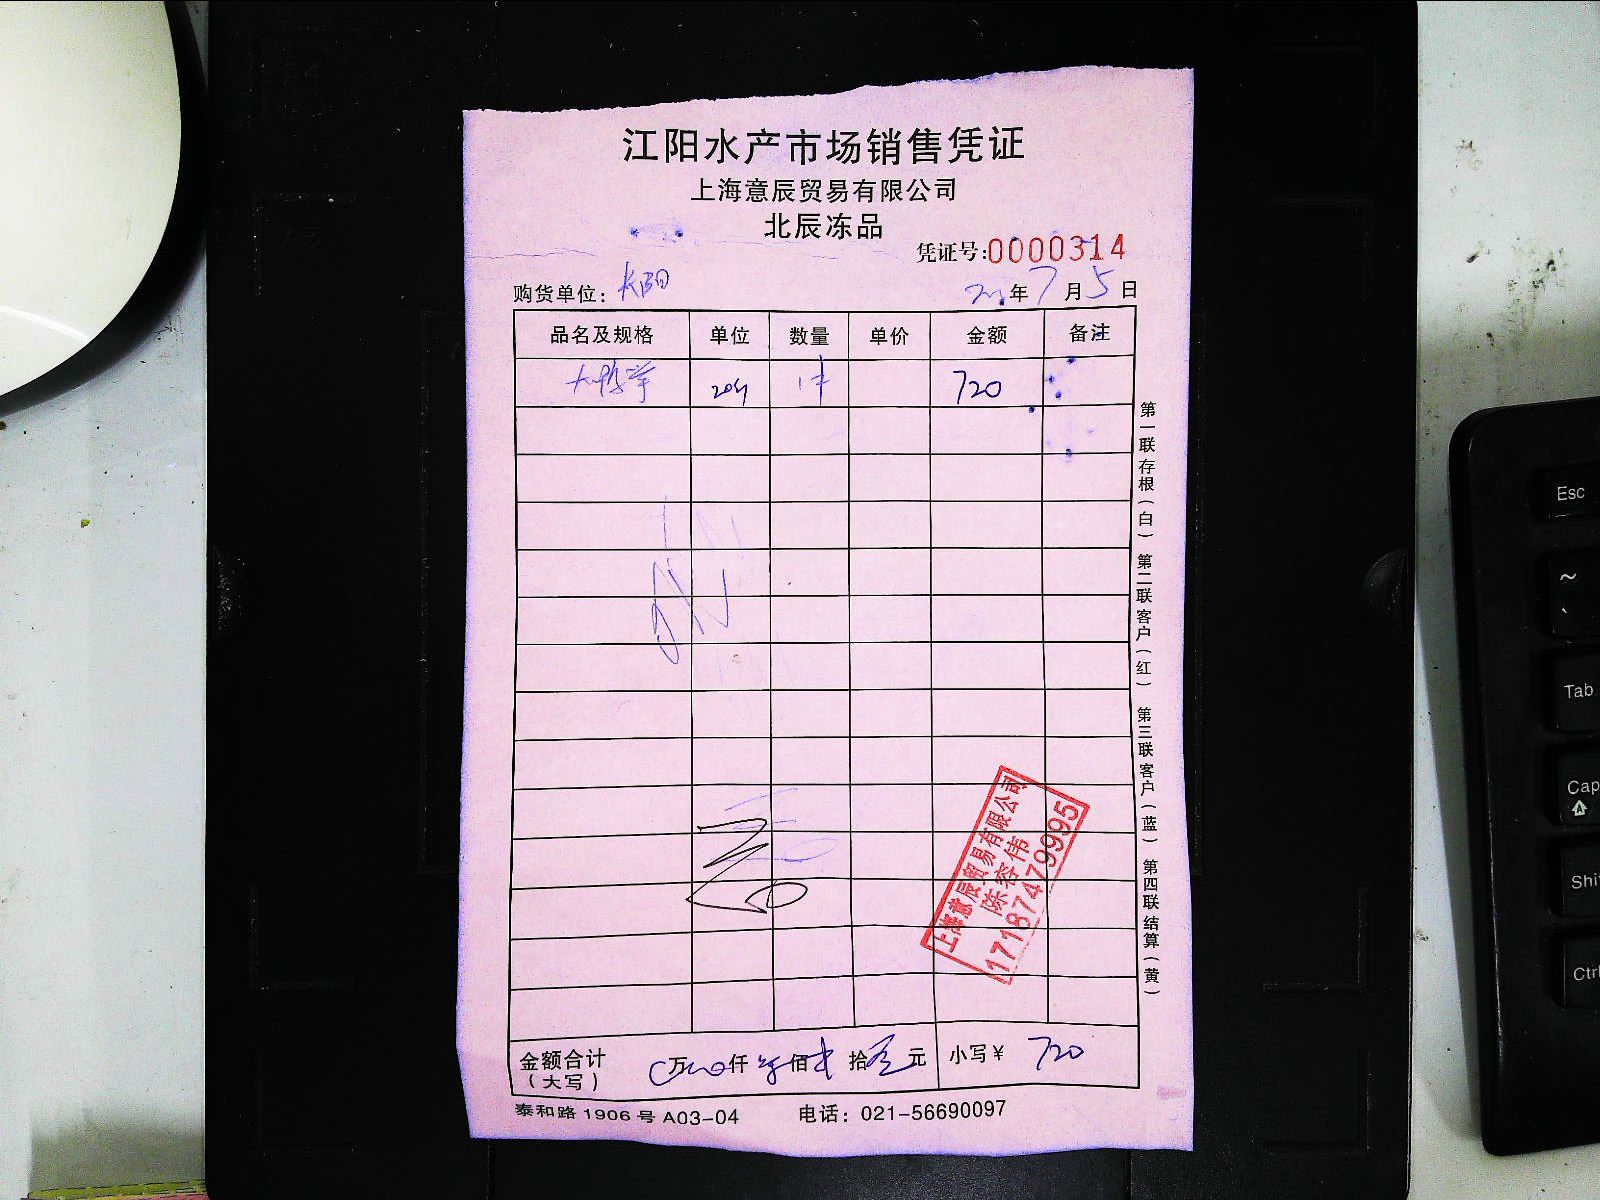 江阳水产市场销售凭证
上海意辰贸易有限公司
北辰冻品
凭证号:0000314
购货单位: 长阳
年7月5日
品名及规格 单位 数量 单价 金额 备注
720
上海意辰贸易有限公司
陈容伟
17187479995
金额合计 万 仟 佰 拾 元 小写¥ 720
(大写)
泰和路1906号A03-04 电话: 021-56690097
第一联存根(白) 第二联客户(红) 第三联客户(蓝) 第四联结算(黄)
Esc
~
`
Tab
Cap
Shi
Ctrl